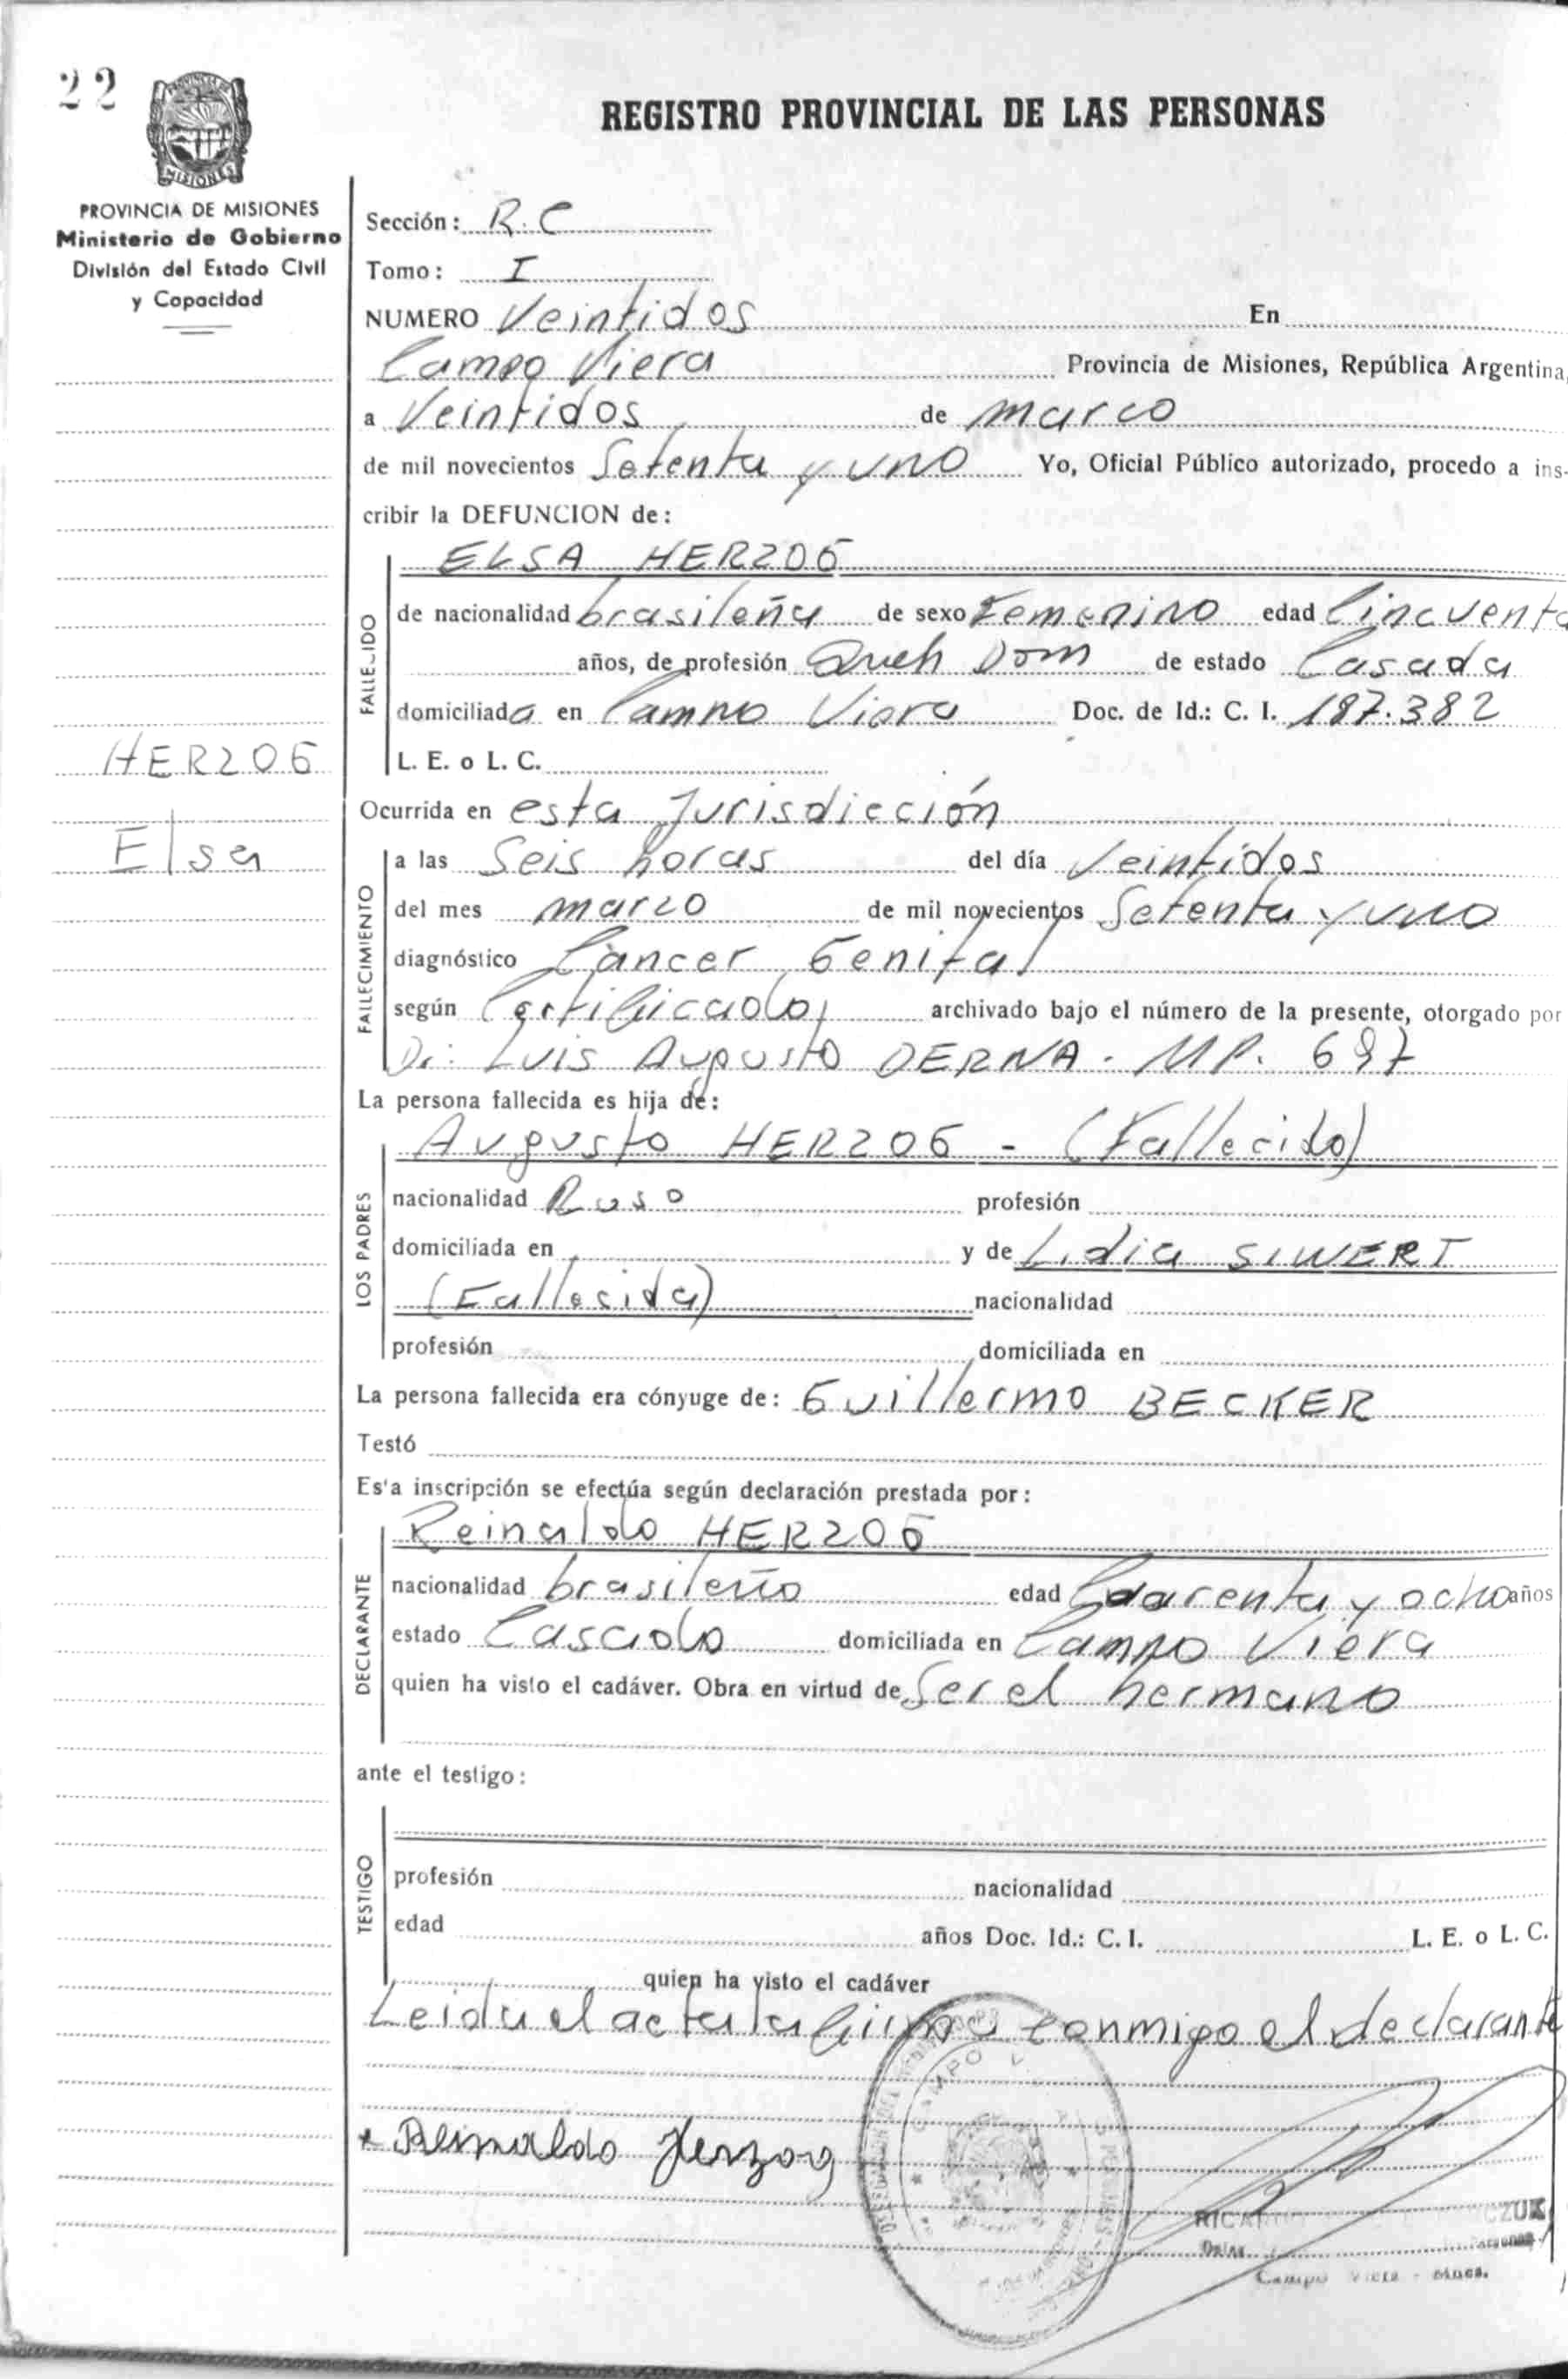 22
REGISTRO PROVINCIAL DE LAS PERSONAS
MISIONES
PROVINCIA DE MISIONES
Ministerio de Gobierno
División del Estado Civil
y Capacidad
Sección: R.C
Tomo: I
NUMERO Veintidos En
Campo Viera Provincia de Misiones, República Argentina,
a Veintidos de marco
de mil novecientos Setenta y uno Yo, Oficial Público autorizado, procedo a ins-
cribir la DEFUNCION de:
FALLEJIDO
ELSA HERZOG
de nacionalidad brasileña de sexo Femenino edad Cincuenta
años, de profesión Queh Dom de estado Casada
domiciliada en Campo Viera Doc. de Id.: C. I. 187.382
L. E. o L. C.
HERZOG
Elsa
Ocurrida en esta Jurisdicción
FALLECIMIENTO
a las Seis horas del día Veintidos
del mes marzo de mil novecientos Setenta y uno
diagnóstico Cancer Genital
según Certificado, archivado bajo el número de la presente, otorgado por
Dr: Luis Augusto DERNA - MP. 697
La persona fallecida es hija de:
LOS PADRES
Augusto HERZOG - (Fallecido)
nacionalidad Ruso profesión
domiciliada en y de Lidia SIWERT
(Fallecida) nacionalidad
profesión domiciliada en
La persona fallecida era cónyuge de: Guillermo BECKER
Testó
Es'a inscripción se efectúa según declaración prestada por:
DECLARANTE
Reinaldo HERZOG
nacionalidad brasileño edad Cuarenta y ocho años
estado Casado domiciliada en Campo Viera
quien ha visto el cadáver. Obra en virtud de Ser el hermano
ante el testigo:
TESTIGO
profesión nacionalidad
edad años Doc. Id.: C. I. L. E. o L. C.
quien ha visto el cadáver
Leida el acta la firma conmigo el declarante
Reinaldo Herzog
CAMPO
Campo Viera - Mnes.